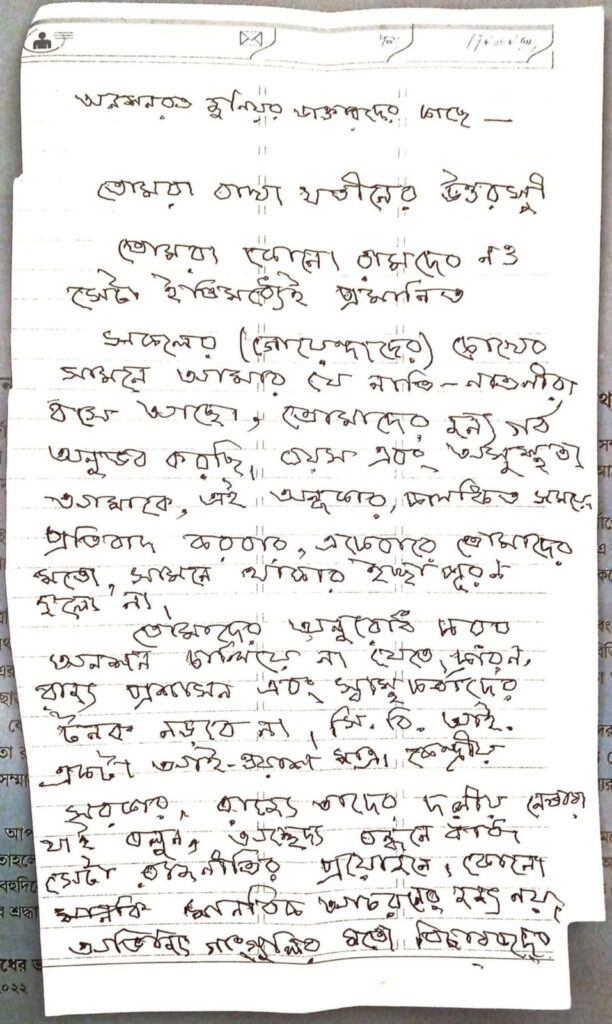 অনশনরত জুনিয়র ডাক্তারদের কাছে —
তোমরা বাঘা যতীনের উত্তরসূরী
তোমরা কোনো রামদেব নও
সেটা ইতিমধ্যেই প্রমানিত
সকলের (গোয়েন্দাদের) চোখের
সামনে আমার যে নাতি-নাতনীরা
বসে আছো, তোমাদের জন্য গর্ব
অনুভব করছি, বয়স এবং অসুস্থতা
আমাকে, এই অন্ধকার, সময়ে
প্রতিবাদ করবার, একেবারে তোমাদের
মতো, সামনে থাকার ইচ্ছা পূরণ
হলো না।
তোমাদের অনুরোধ করব
অনশন চালিয়ে না যেতে, কারন,
রাজ্য প্রশাসন এবং স্বাস্থ্য কর্তাদের
টনক নড়বে না, সি. বি. আই.
একটা আই-ওয়াশ মাত্র। কেন্দ্রীয়
সরকার, রাজ্যে তাদের দলীয় নেতারা
যাই বলুন, অচ্ছেদ্য বন্ধনে বাঁধা,
সেটা রাজনীতির প্রয়োজনে, কোনো
মানবিক আচরনের জন্য নয়,
মতো বিচারকদের
২০২২